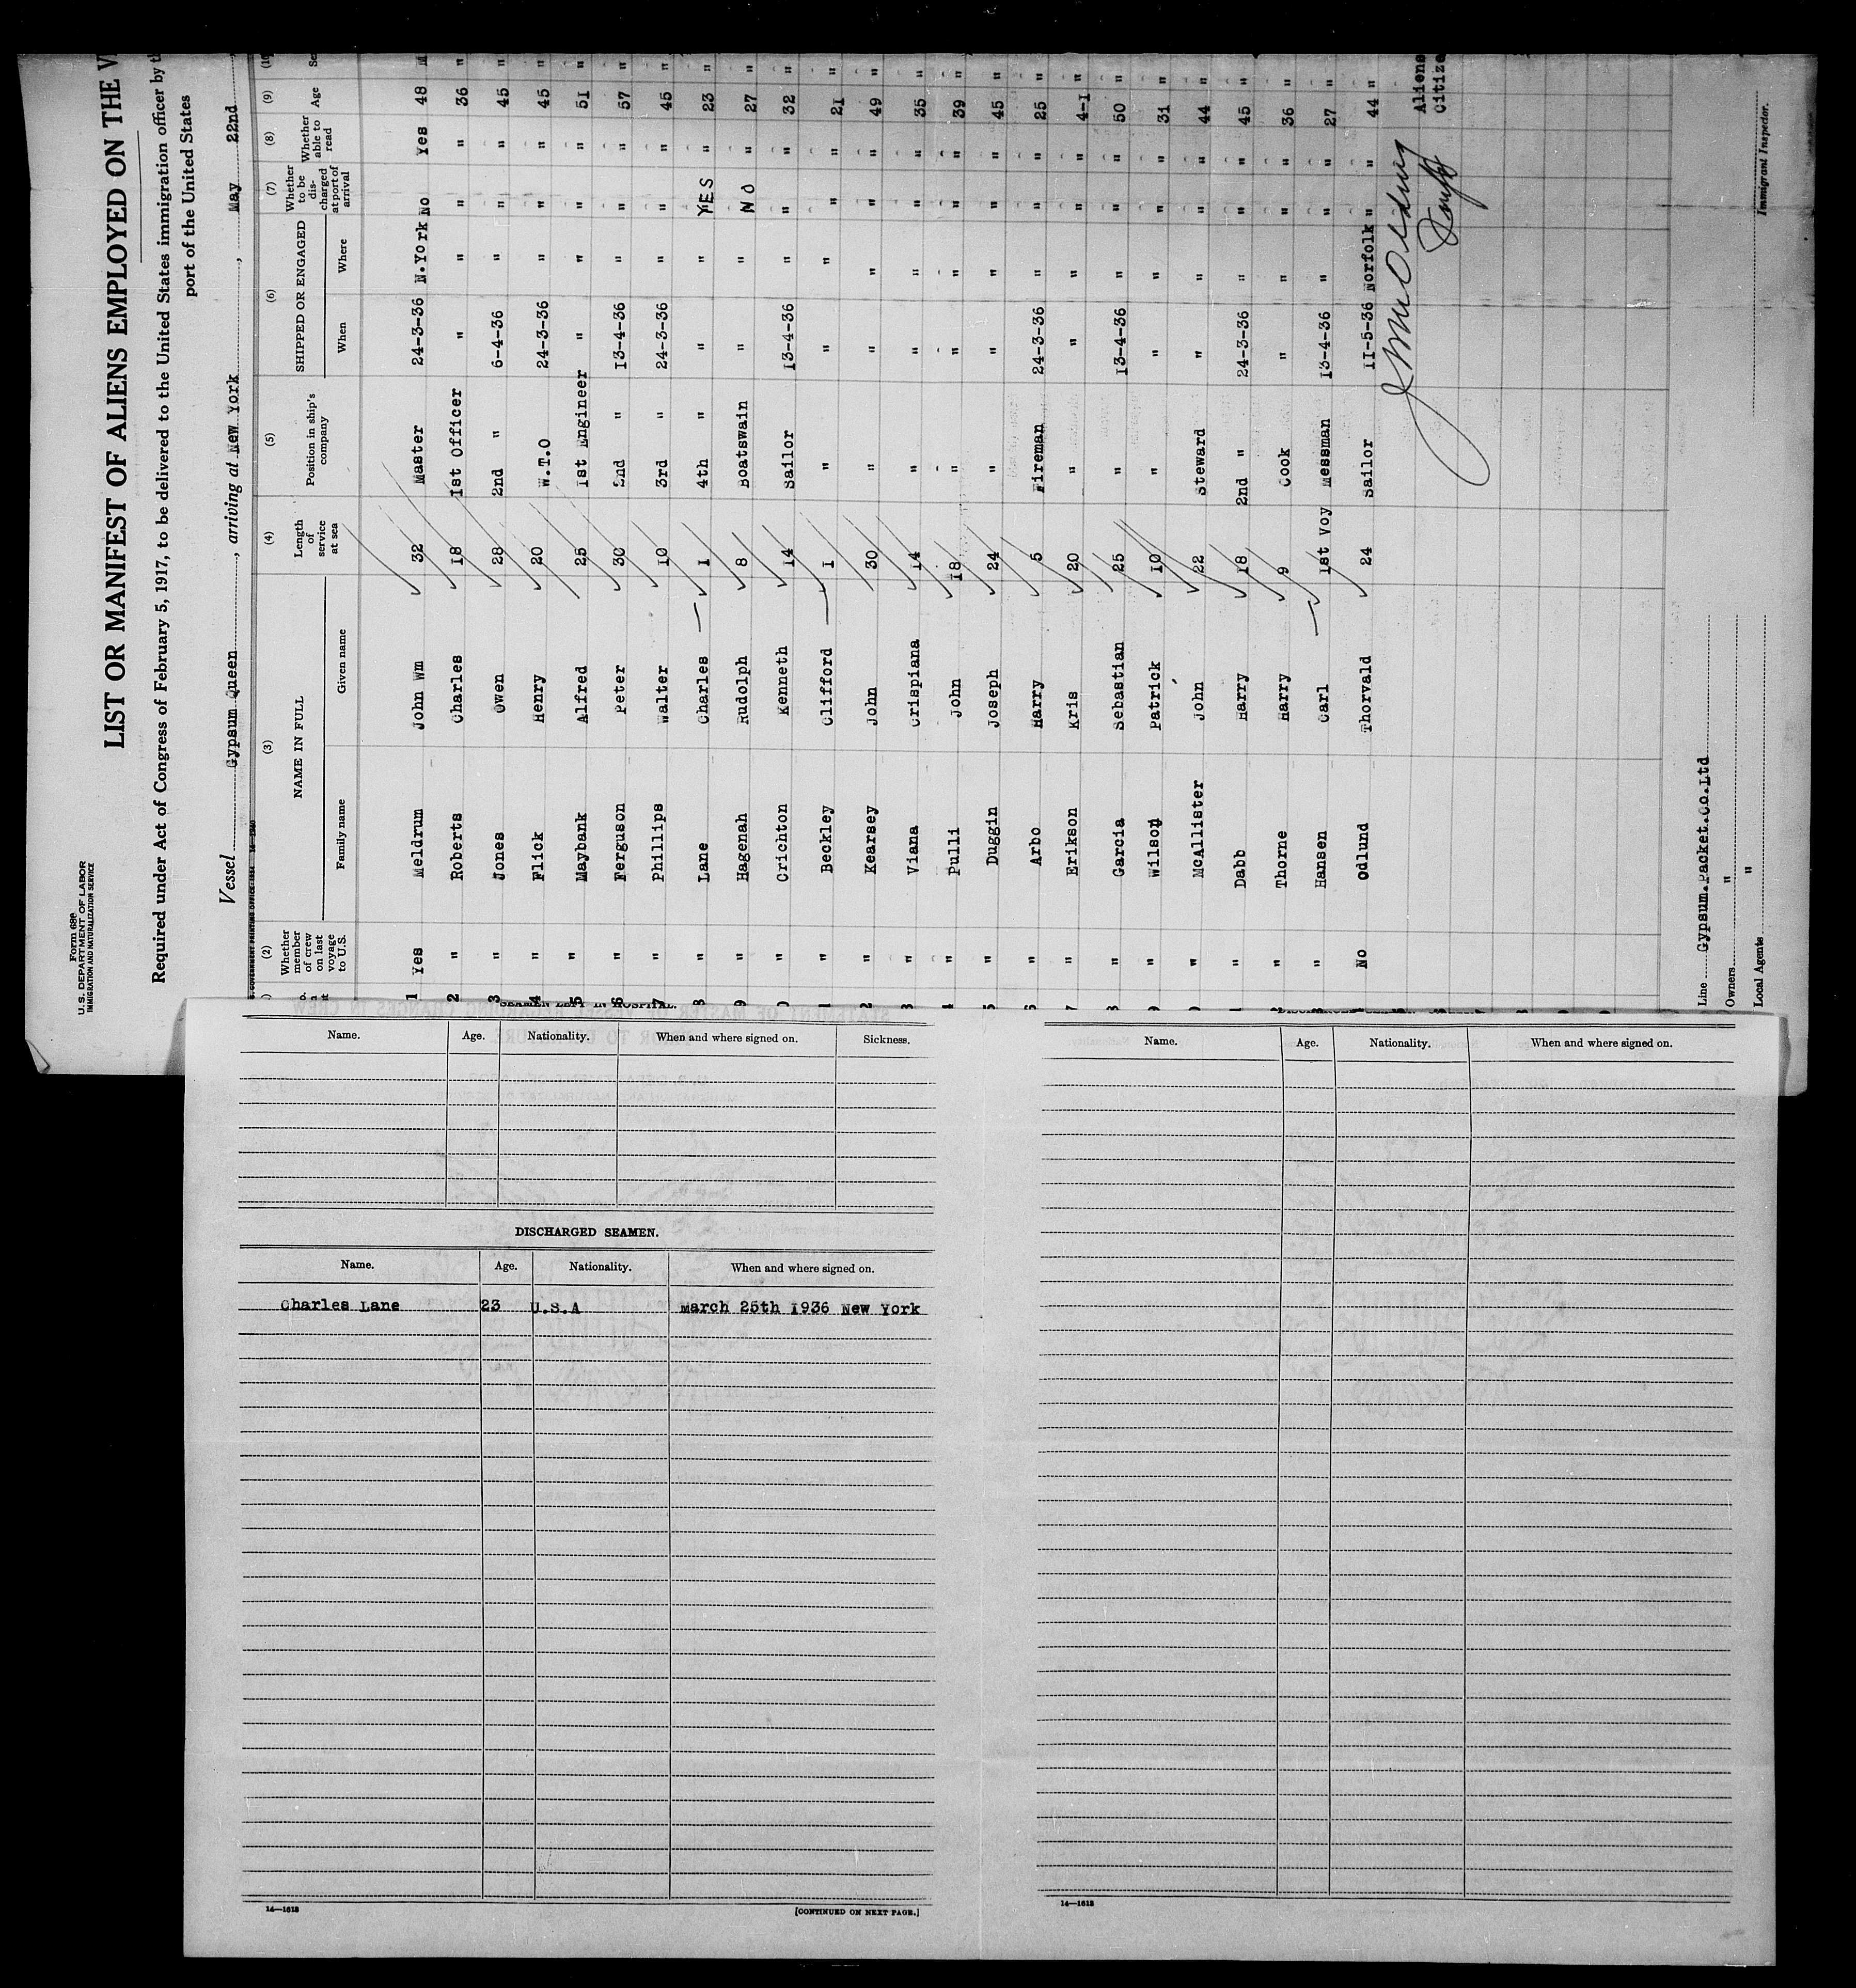 Form 686
U. S. DEPARTMENT OF LABOR
IMMIGRATION AND NATURALIZATION SERVICE
LIST OR MANIFEST OF ALIENS EMPLOYED ON THE V
Required under Act of Congress of February 5, 1917, to be delivered to the United States immigration officer by th
port of the United States
Vessel Gypsum Queen, arriving at New York, May 22nd
(2) (3) (4) (5) (6) (7) (8) (9) (10
Whether member of crew on last voyage to U.S. NAME IN FULL Family name Given name Length of service at sea Position in ship's company SHIPPED OR ENGAGED When Where Whether to be discharged at port of arrival Whether able to read Age Se
1 Yes Meldrum John Wm 32 Master 24-3-36 N.York No Yes 48 M
2 " Roberts Charles 18 1st Officer " " " " 36 "
3 " Jones Owen 28 2nd " 6-4-36 " " " 45 "
4 " Flick Henry 20 W.T.O 24-3-36 " " " 45 "
5 " Maybank Alfred 25 1st Engineer " " " " 51 "
6 " Ferguson Peter 30 2nd " 13-4-36 " " " 57 "
7 " Phillips Walter 10 3rd " 24-3-36 " " " 45 "
8 " Lane Charles 1 4th " " " YES " 23 "
9 " Hagenah Rudolph 8 Boatswain " " NO " 27 "
0 " Crichton Kenneth 14 Sailor 13-4-36 " " " 32 "
1 " Beckley Clifford 1 " " " " " 21 "
2 " Kearsey John 30 " " " " " 49 "
3 " Viana Crispiana 14 " " " " " 35 "
4 " Pulli John 18 " " " " " 39 "
5 " Duggin Joseph 24 " " " " " 45 "
6 " Arbo Harry 5 Fireman 24-3-36 " " " 25 "
7 " Erikson Kris 20 " " " " " 4-1 "
8 " Garcia Sebastian 25 " 13-4-36 " " " 50 "
9 " Wilson Patrick 10 " " " " " 31 "
0 " McAllister John 22 Steward " " " " 44 "
1 " Dabb Harry 18 2nd " 24-3-36 " " " 45 "
2 " Thorne Harry 9 Cook " " " " 36 "
3 " Hansen Carl 1st Voy Messman 13-4-36 " " " 27 "
No Odlund Thorvald 24 Sailor 11-5-36 Norfolk " " 44 "
Aliens
Citize
Line Gypsum.Packet.Co.Ltd
Owners "
Local Agents "
Immigrant Inspector.
SEAMEN LEFT IN HOSPITAL.
Name. Age. Nationality. When and where signed on. Sickness.
DISCHARGED SEAMEN.
Name. Age. Nationality. When and where signed on.
Charles Lane 23 U.S.A March 25th 1936 New York
14—1613
[CONTINUED ON NEXT PAGE.]
Name. Age. Nationality. When and where signed on.
14—1613